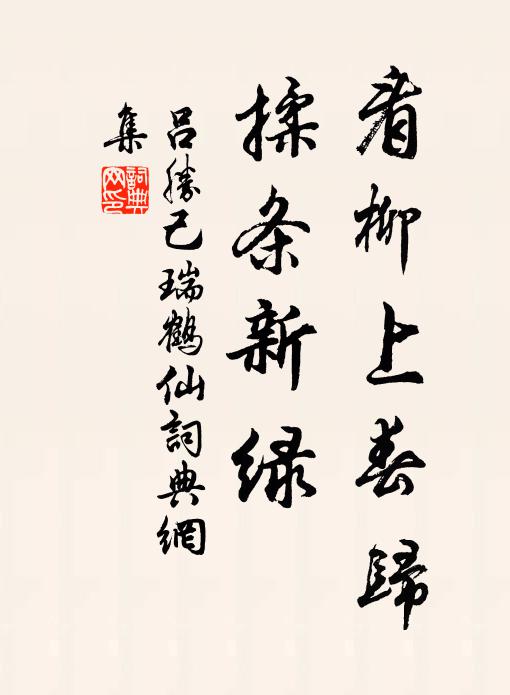 看柳上春歸
揉条新緑
呂勝己瑞鶴仙詞典網
集
詞典
网印